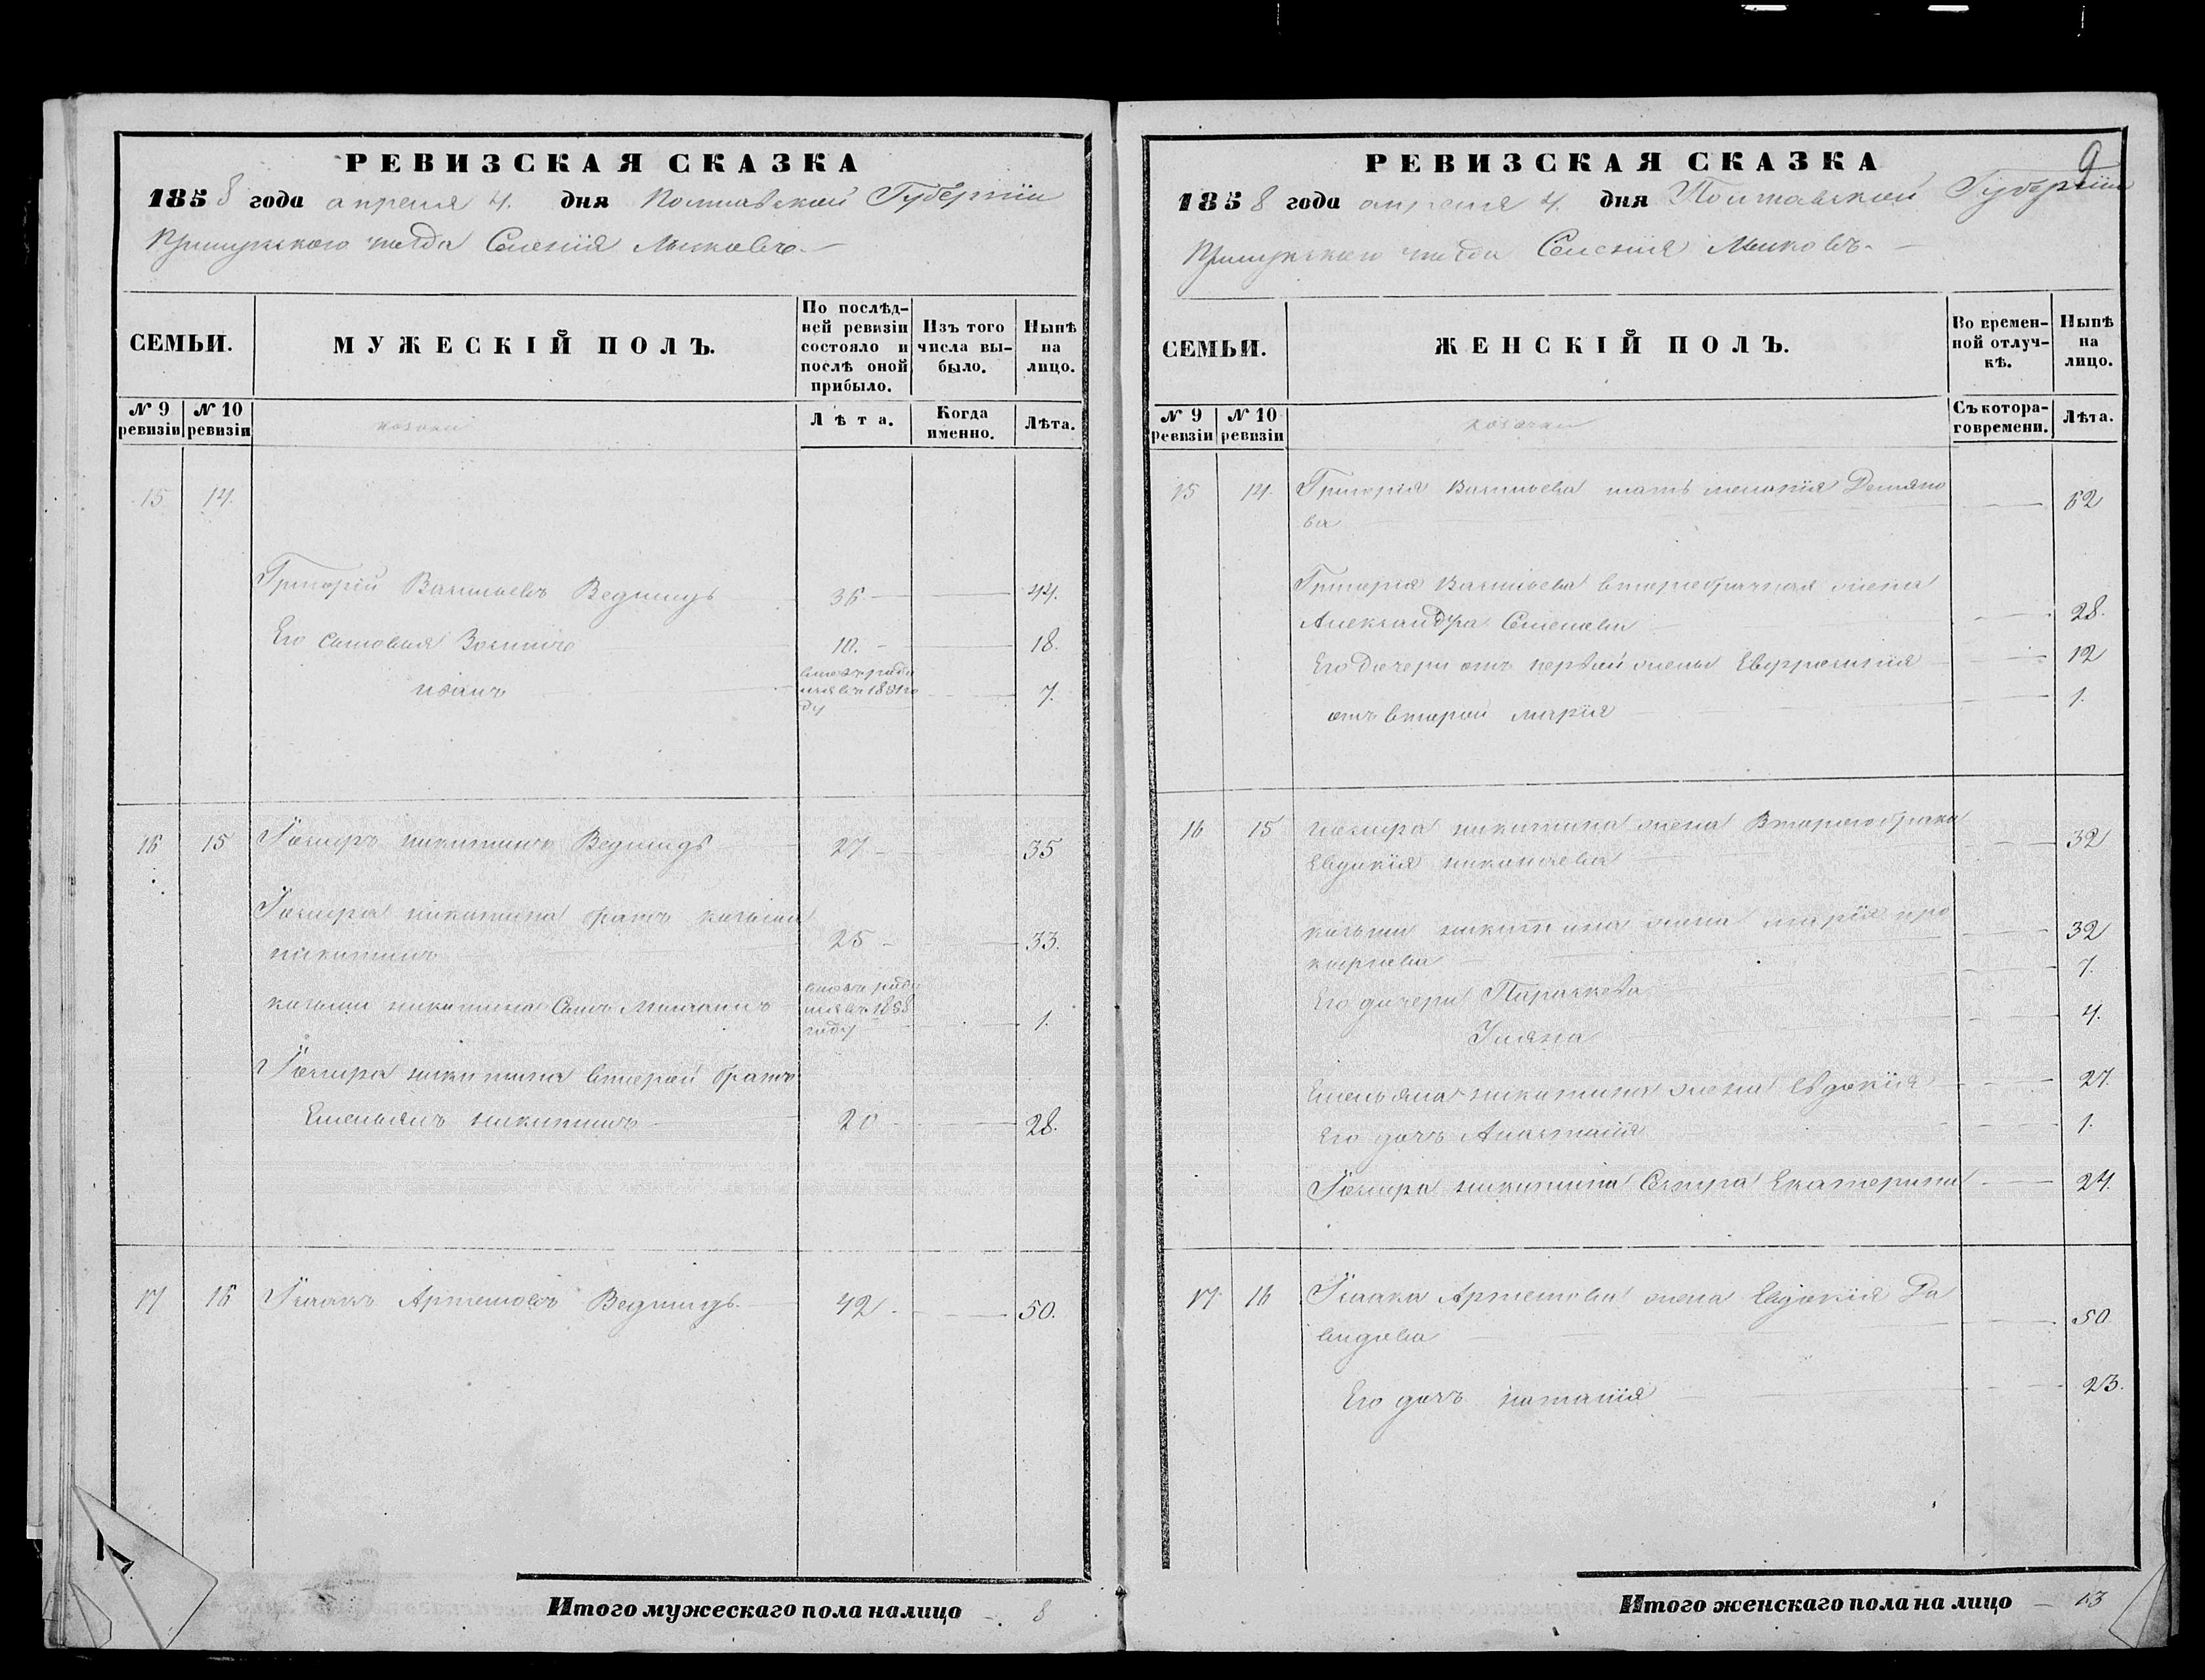 РЕВИЗСКАЯ СКАЗКА
1858 года апреля 4. дня Полтавской Губернiи
Прилукского уезда Селенiя
СЕМЬИ.
МУЖЕСКIЙ ПОЛЪ.
По послѣд-
ней ревизiи
состояло и
послѣ оной
прибыло.
Изъ того
числа вы-
было.
Нынѣ
на
лицо.
№ 9
ревизiи
№ 10
ревизiи
козаки
Лѣта.
Когда
именно.
Лѣта.
15 14.
Григорiй Васильевъ Ведмидь 36 44.
Его сыновья 10. 18.
Иванъ 7.
16 15 никитинъ Ведмидь 27 35
никитина братъ козьма
никитинъ 25 33.
козьмы никитина Сынъ 1.
никитина второй братъ
Емельянъ никитинъ 20 28.
17 16 Исаакъ Артемовъ Ведмидь. 42 50.
Итого мужескаго пола налицо 8
9
РЕВИЗСКАЯ СКАЗКА
1858 года апреля 4. дня Полтавской Губернiи
Прилукского уезда Селенiя
СЕМЬИ.
ЖЕНСКIЙ ПОЛЪ.
Во времен-
ной отлуч-
кѣ.
Нынѣ
на
лицо.
№ 9
ревизiи
№ 10
ревизiи
Съ котора-
го времени.
Лѣта.
15 14. Григорiя Васильева мать 62
ва
Григорiя Васильева второбрачная жена
Александра Семенова 28.
Его дочери отъ первой жены Евфросинiя 12
отъ второй марiя 1.
16 15 никитина жена
Евдокiя 32
козьмы никитина жена марiя про
кофiева 32
Его дочери Параскева 7.
Уляна 4.
Емельяна никитина жена Евдокiя 27.
Его дочь Анастасiя 1.
никитина Сестра Екатерина 24.
17 16 Исаака Артемова жена Евдокiя Да
видова 50
Его дочь наталiя 23.
Итого женскаго пола на лицо 13